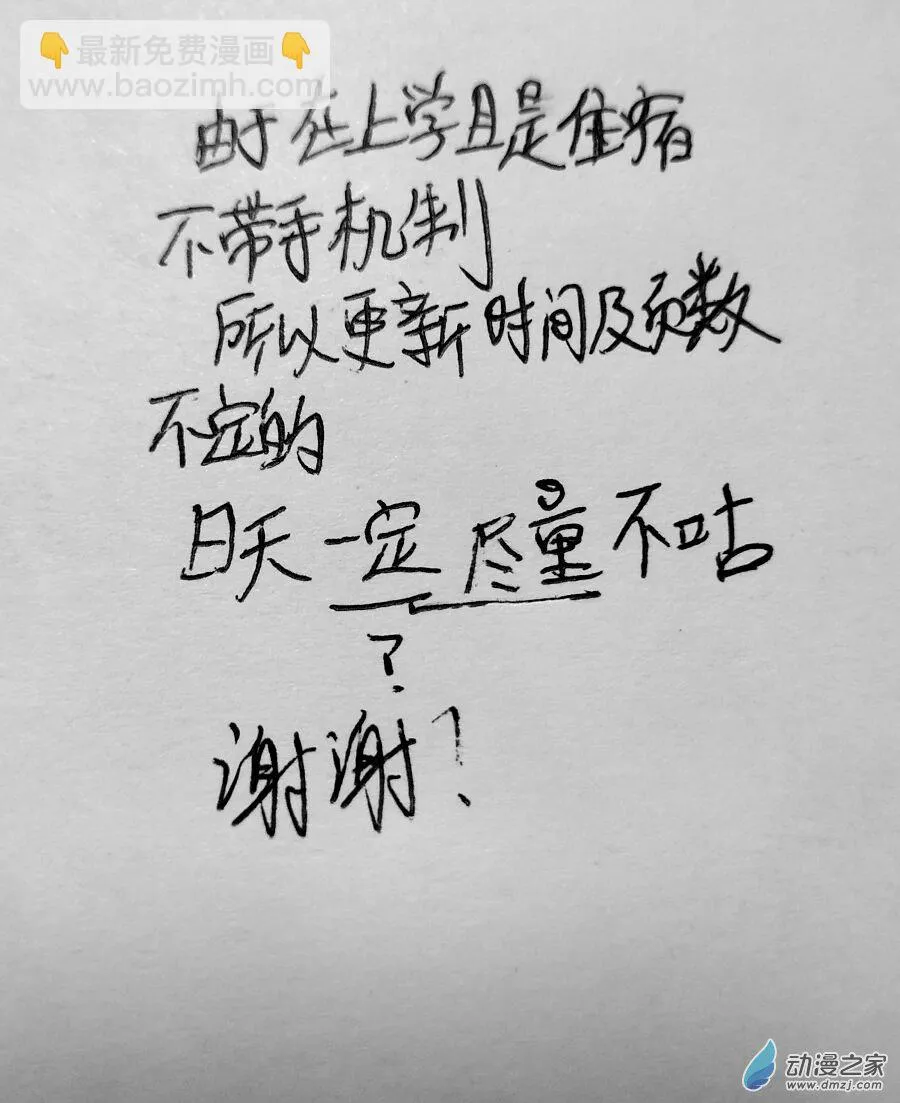 👇最新免费漫画👇
www.baozimh.com
由于在上学且是住宿
不带手机制
所以更新时间及页数
不定的
日天一定尽量不咕
？
谢谢！
动漫之家
www.dmzj.com